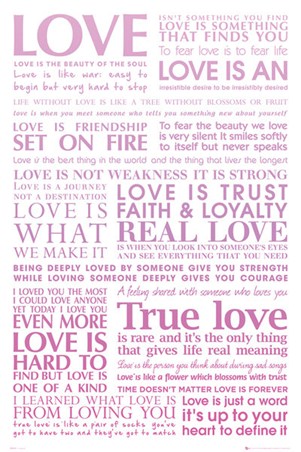 LOVE
LOVE IS THE BEAUTY OF THE SOUL
Love is like war: easy to
begin but very hard to stop
ISN'T SOMETHING YOU FIND
LOVE IS SOMETHING
THAT FINDS YOU
To fear love is to fear life
LOVE IS AN
irresistible desire to be irresistibly desired
LIFE WITHOUT LOVE IS LIKE A TREE WITHOUT BLOSSOMS OR FRUIT
love is when you meet someone who tells you something new about yourself
LOVE IS FRIENDSHIP
SET ON FIRE
To fear the beauty we love
is very silent It smiles softly
to itself but never speaks
Love is the best thing in the world and the thing that lives the longest
LOVE IS NOT WEAKNESS IT IS STRONG
LOVE IS A JOURNEY
NOT A DESTINATION
LOVE IS
WHAT
WE MAKE IT
LOVE IS TRUST
FAITH & LOYALTY
REAL LOVE
IS WHEN YOU LOOK INTO SOMEONE'S EYES
AND SEE EVERYTHING THAT YOU NEED
BEING DEEPLY LOVED BY SOMEONE GIVE YOU STRENGTH
WHILE LOVING SOMEONE DEEPLY GIVES YOU COURAGE
I LOVED YOU THE MOST
I COULD LOVE ANYONE
YET TODAY I LOVE YOU
EVEN MORE
LOVE IS
HARD TO
FIND BUT LOVE IS
ONE OF A KIND
I LEARNED WHAT LOVE IS
FROM LOVING YOU
true love is like a pair of socks you've
got to have two and they've got to match
A feeling shared with someone who loves you
True love
is rare and it's the only thing
that gives life real meaning
Love is the person you think about during sad songs
Love is like a flower which blossoms with trust
TIME DOESN'T MATTER LOVE IS FOREVER
Love is just a word
it's up to your
heart to define it